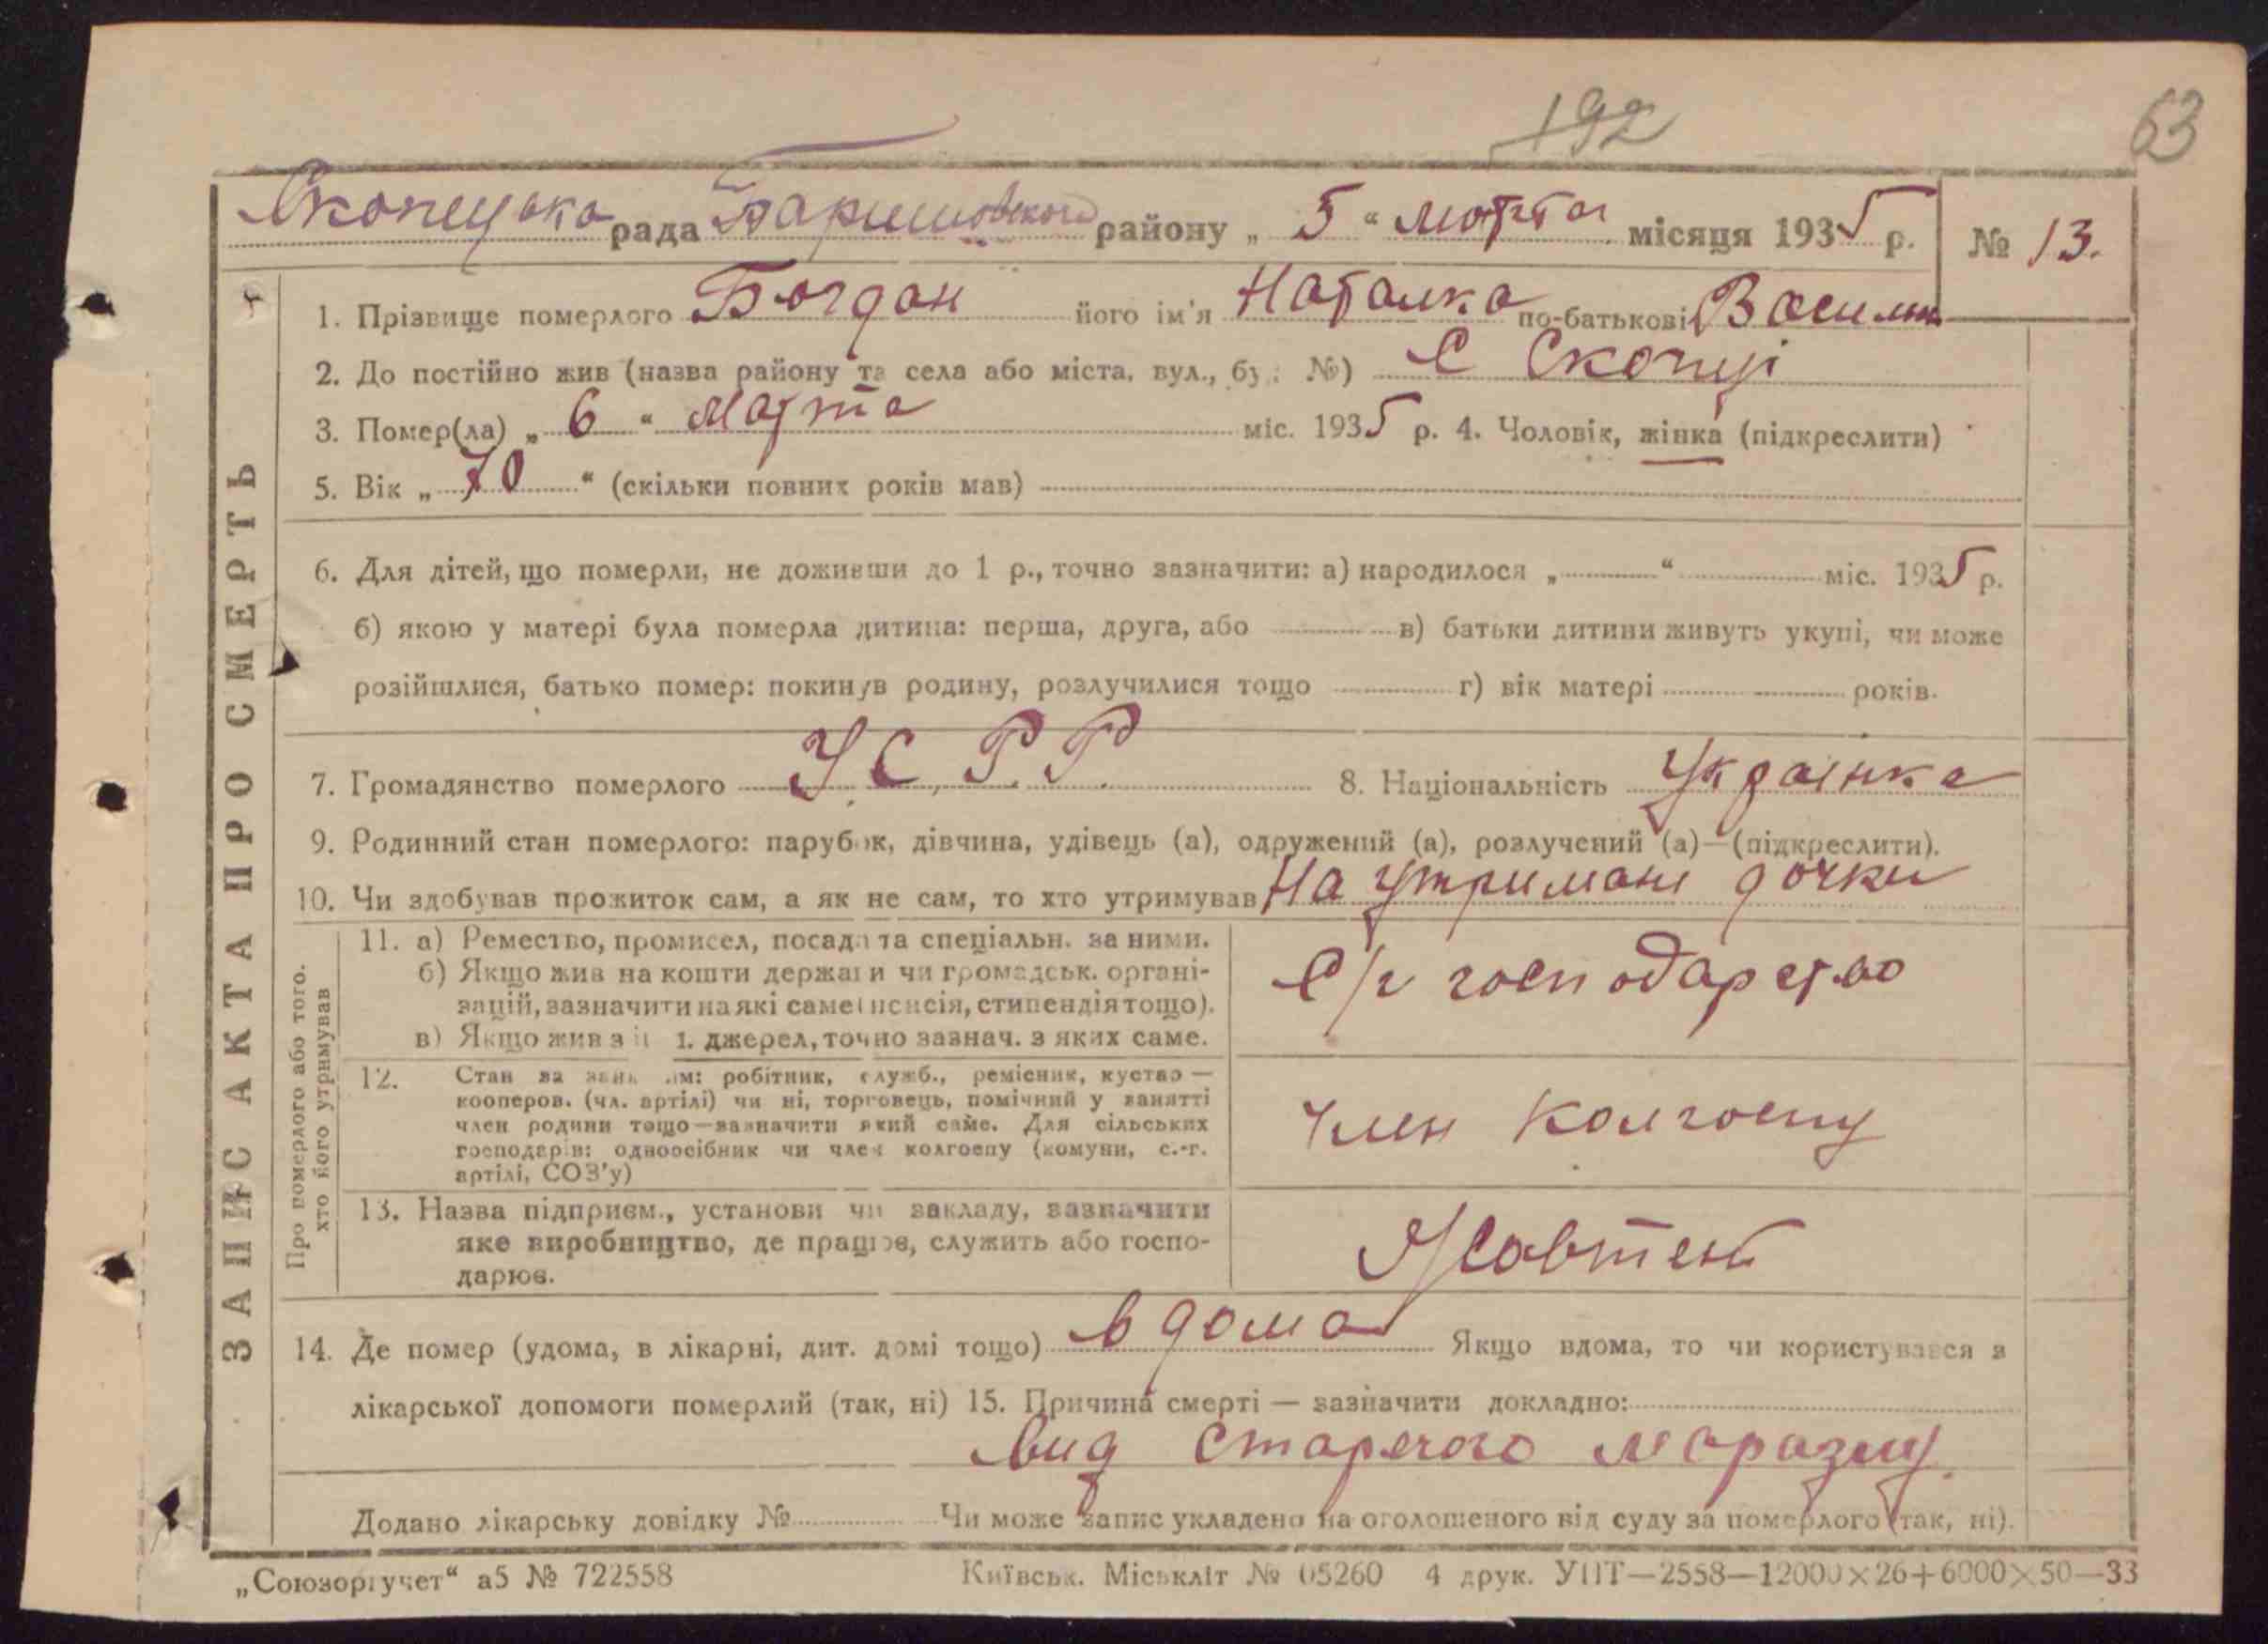 192
63
Скопецька рада Баришовского району „ 5 “ марта місяця 1935 р. № 13.
ЗАПИС АКТА ПРО СМЕРТЬ
1. Прізвище померлого Богдан його ім'я Наталка по-батькові Васили
2. До постійно жив (назва району та села або міста, вул., буд. №) С Скопці
3. Помер(ла) „ 6 “ марта міс. 1935 р. 4. Чоловік, жінка (підкреслити)
5. Вік „ 70 “ (скільки повних років мав)
6. Для дітей, що померли, не доживши до 1 р., точно зазначити: а) народилося „ “ міс. 1935 р.
б) якою у матері була померла дитина: перша, друга, або в) батьки дитини живуть укупі, чи може
розійшлися, батько помер: покинув родину, розлучилися тощо г) вік матері років.
7. Громадянство померлого У С Р Р 8. Національність Українка
9. Родинний стан померлого: парубок, дівчина, удівець (а), одружений (а), розлучений (а)—(підкреслити).
10. Чи здобував прожиток сам, а як не сам, то хто утримував На утримані дочки
Про померлого або того.
хто його утримував
11. а) Ремество, промисел, посада та спеціальн. за ними.
б) Якщо жив на кошти держави чи громадськ. органі-
зацій, зазначити на які саме (пенсія, стипендія тощо).
в) Якщо жив з ін. джерел, точно зазнач. з яких саме.
С/г господарство
12. Стан за заняттям: робітник, служб., ремісник, кустар —
кооперов. (чл. артілі) чи ні, торговець, помічний у занятті
член родини тощо—зазначити який саме. Для сільських
господарів: одноосібник чи член колгоспу (комуни, с.-г.
артілі, СОЗ'у)
Член Колгоспу
13. Назва підприєм., установи чи закладу, зазначити
яке виробництво, де працює, служить або госпо-
дарює.
Жовтень
14. Де помер (удома, в лікарні, дит. домі тощо) в дома Якщо вдома, то чи користувався з
лікарської допомоги померлий (так, ні) 15. Причина смерті — зазначити докладно:
вид старечого маразму
Додано лікарську довідку № Чи може запис укладено на оголошеного від суду за померлого (так, ні).
„Союзоргучет“ а5 № 722558 Київськ. Міськліт № 05260 4 друк. УПТ—2558—12000×26+6000×50—33